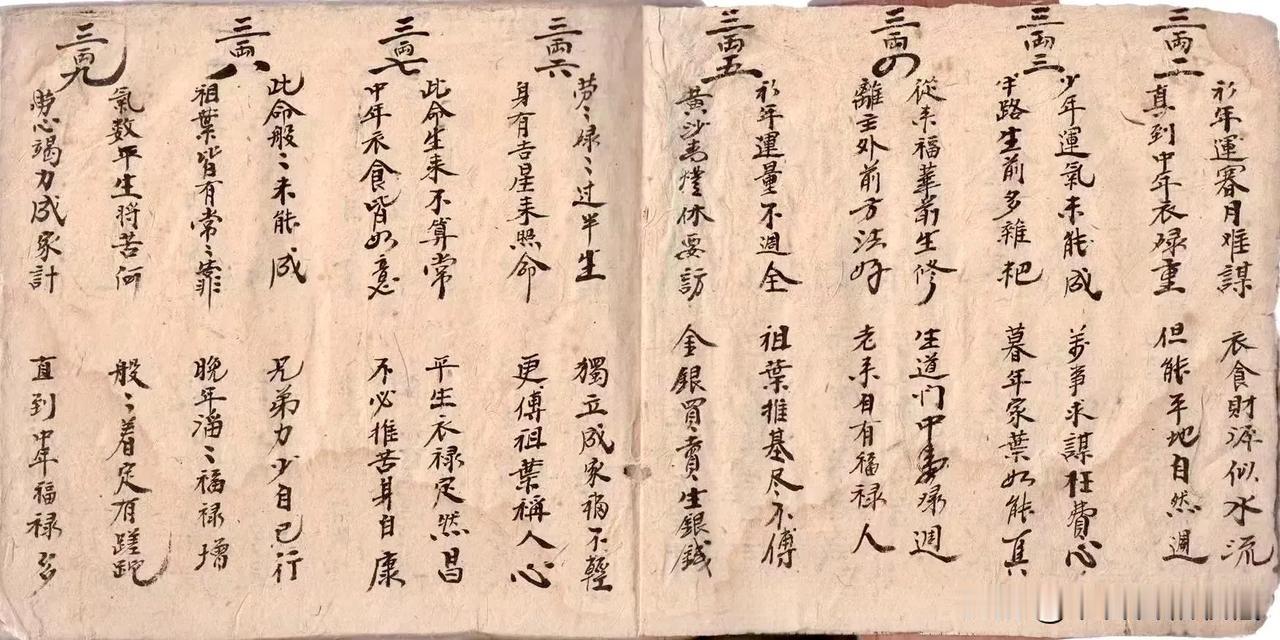 三両二
初年運蹇月难謀 衣食財源似水流
真到中年衣禄重 但能平地自然週
三両三
少年運氣未能成 萬事求謀枉費心
半路生前多雜耙 暮年家葉如能真
三両四
從来福華前生修 生道们中寿禄週
離主外前方法好 老来自有福禄人
三両五
初年運量不週全 祖葉推基尽不傅
黄沙青燈休要訪 金銀買賣生銀錢
三両六
劳〻禄〻过半生 獨立成家稍不輕
身有吉星来照命 更傅祖葉稱人心
三両七
此命生来不算常 平生衣禄定然昌
中年衣食皆如意 不必推苦身自康
三両八
此命般〻未能成 兄弟力少自已行
祖葉皆有常〻靠 晚年滔〻福禄增
三両九
氣数平生将苦何 般〻着定有蹉跎
勞心竭力成家計 直到中年福禄多